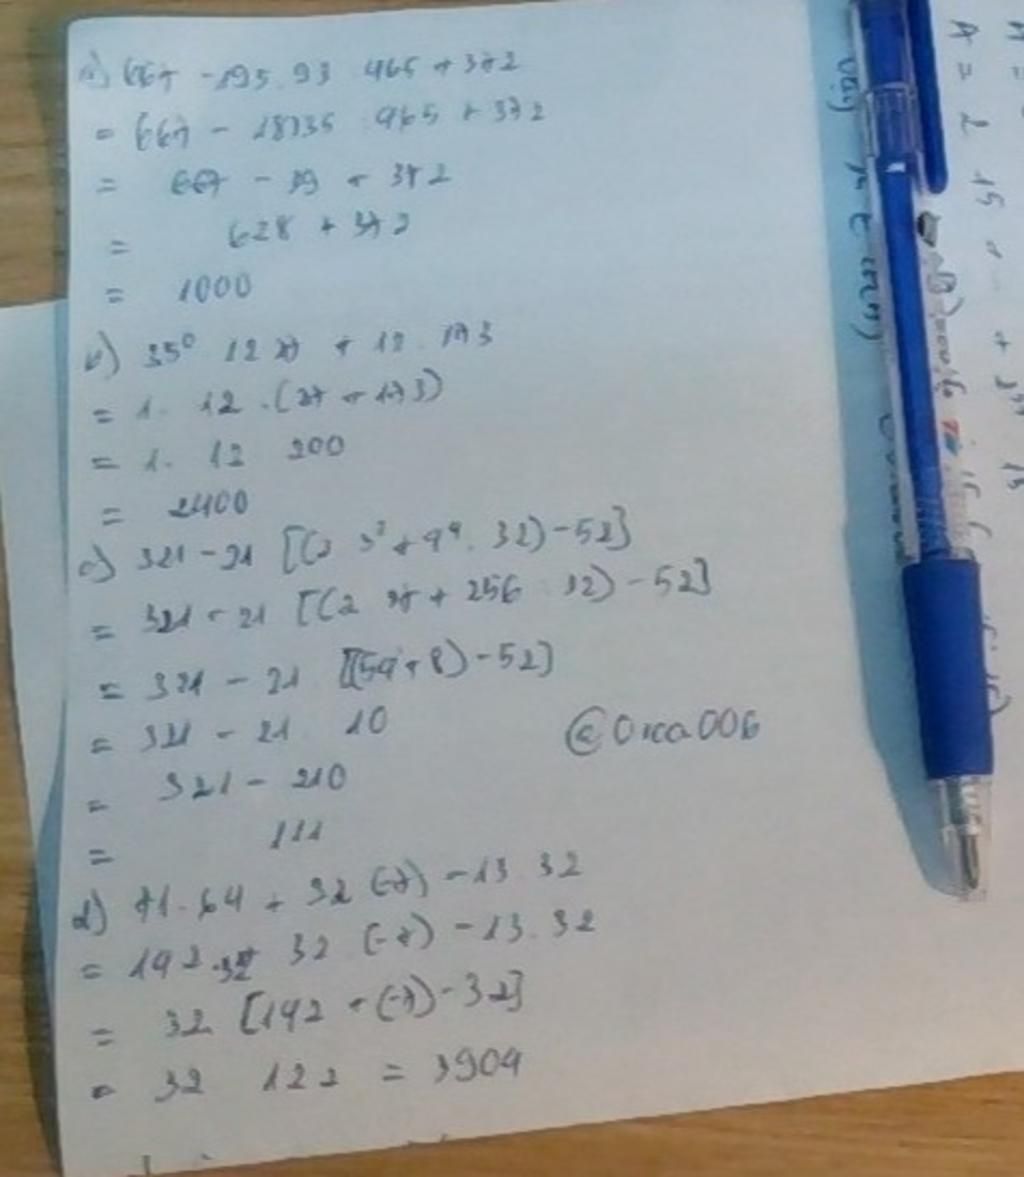 a) 667 - 195.93 : 465 + 372
= 667 - 18135 : 465 + 372
= 667 - 39 + 372
= 628 + 372
= 1000
b) 35⁰ . 12 . 27 + 12 . 173
= 1 . 12 . (27 + 173)
= 1 . 12 . 200
= 2400
c) 321 - 21 . [(2 . 3³ + 4⁴ : 32) - 52]
= 321 - 21 . [(2 . 27 + 256 : 32) - 52]
= 321 - 21 . [(54 + 8) - 52]
= 321 - 21 . 10
= 321 - 210
= 111
@Orca006
d) 71 . 64 + 32 . (-7) - 13 . 32
= 142 . 32 + 32 . (-7) - 13 . 32
= 32 . [142 + (-7) - 32]
= 32 . 122 = 3904